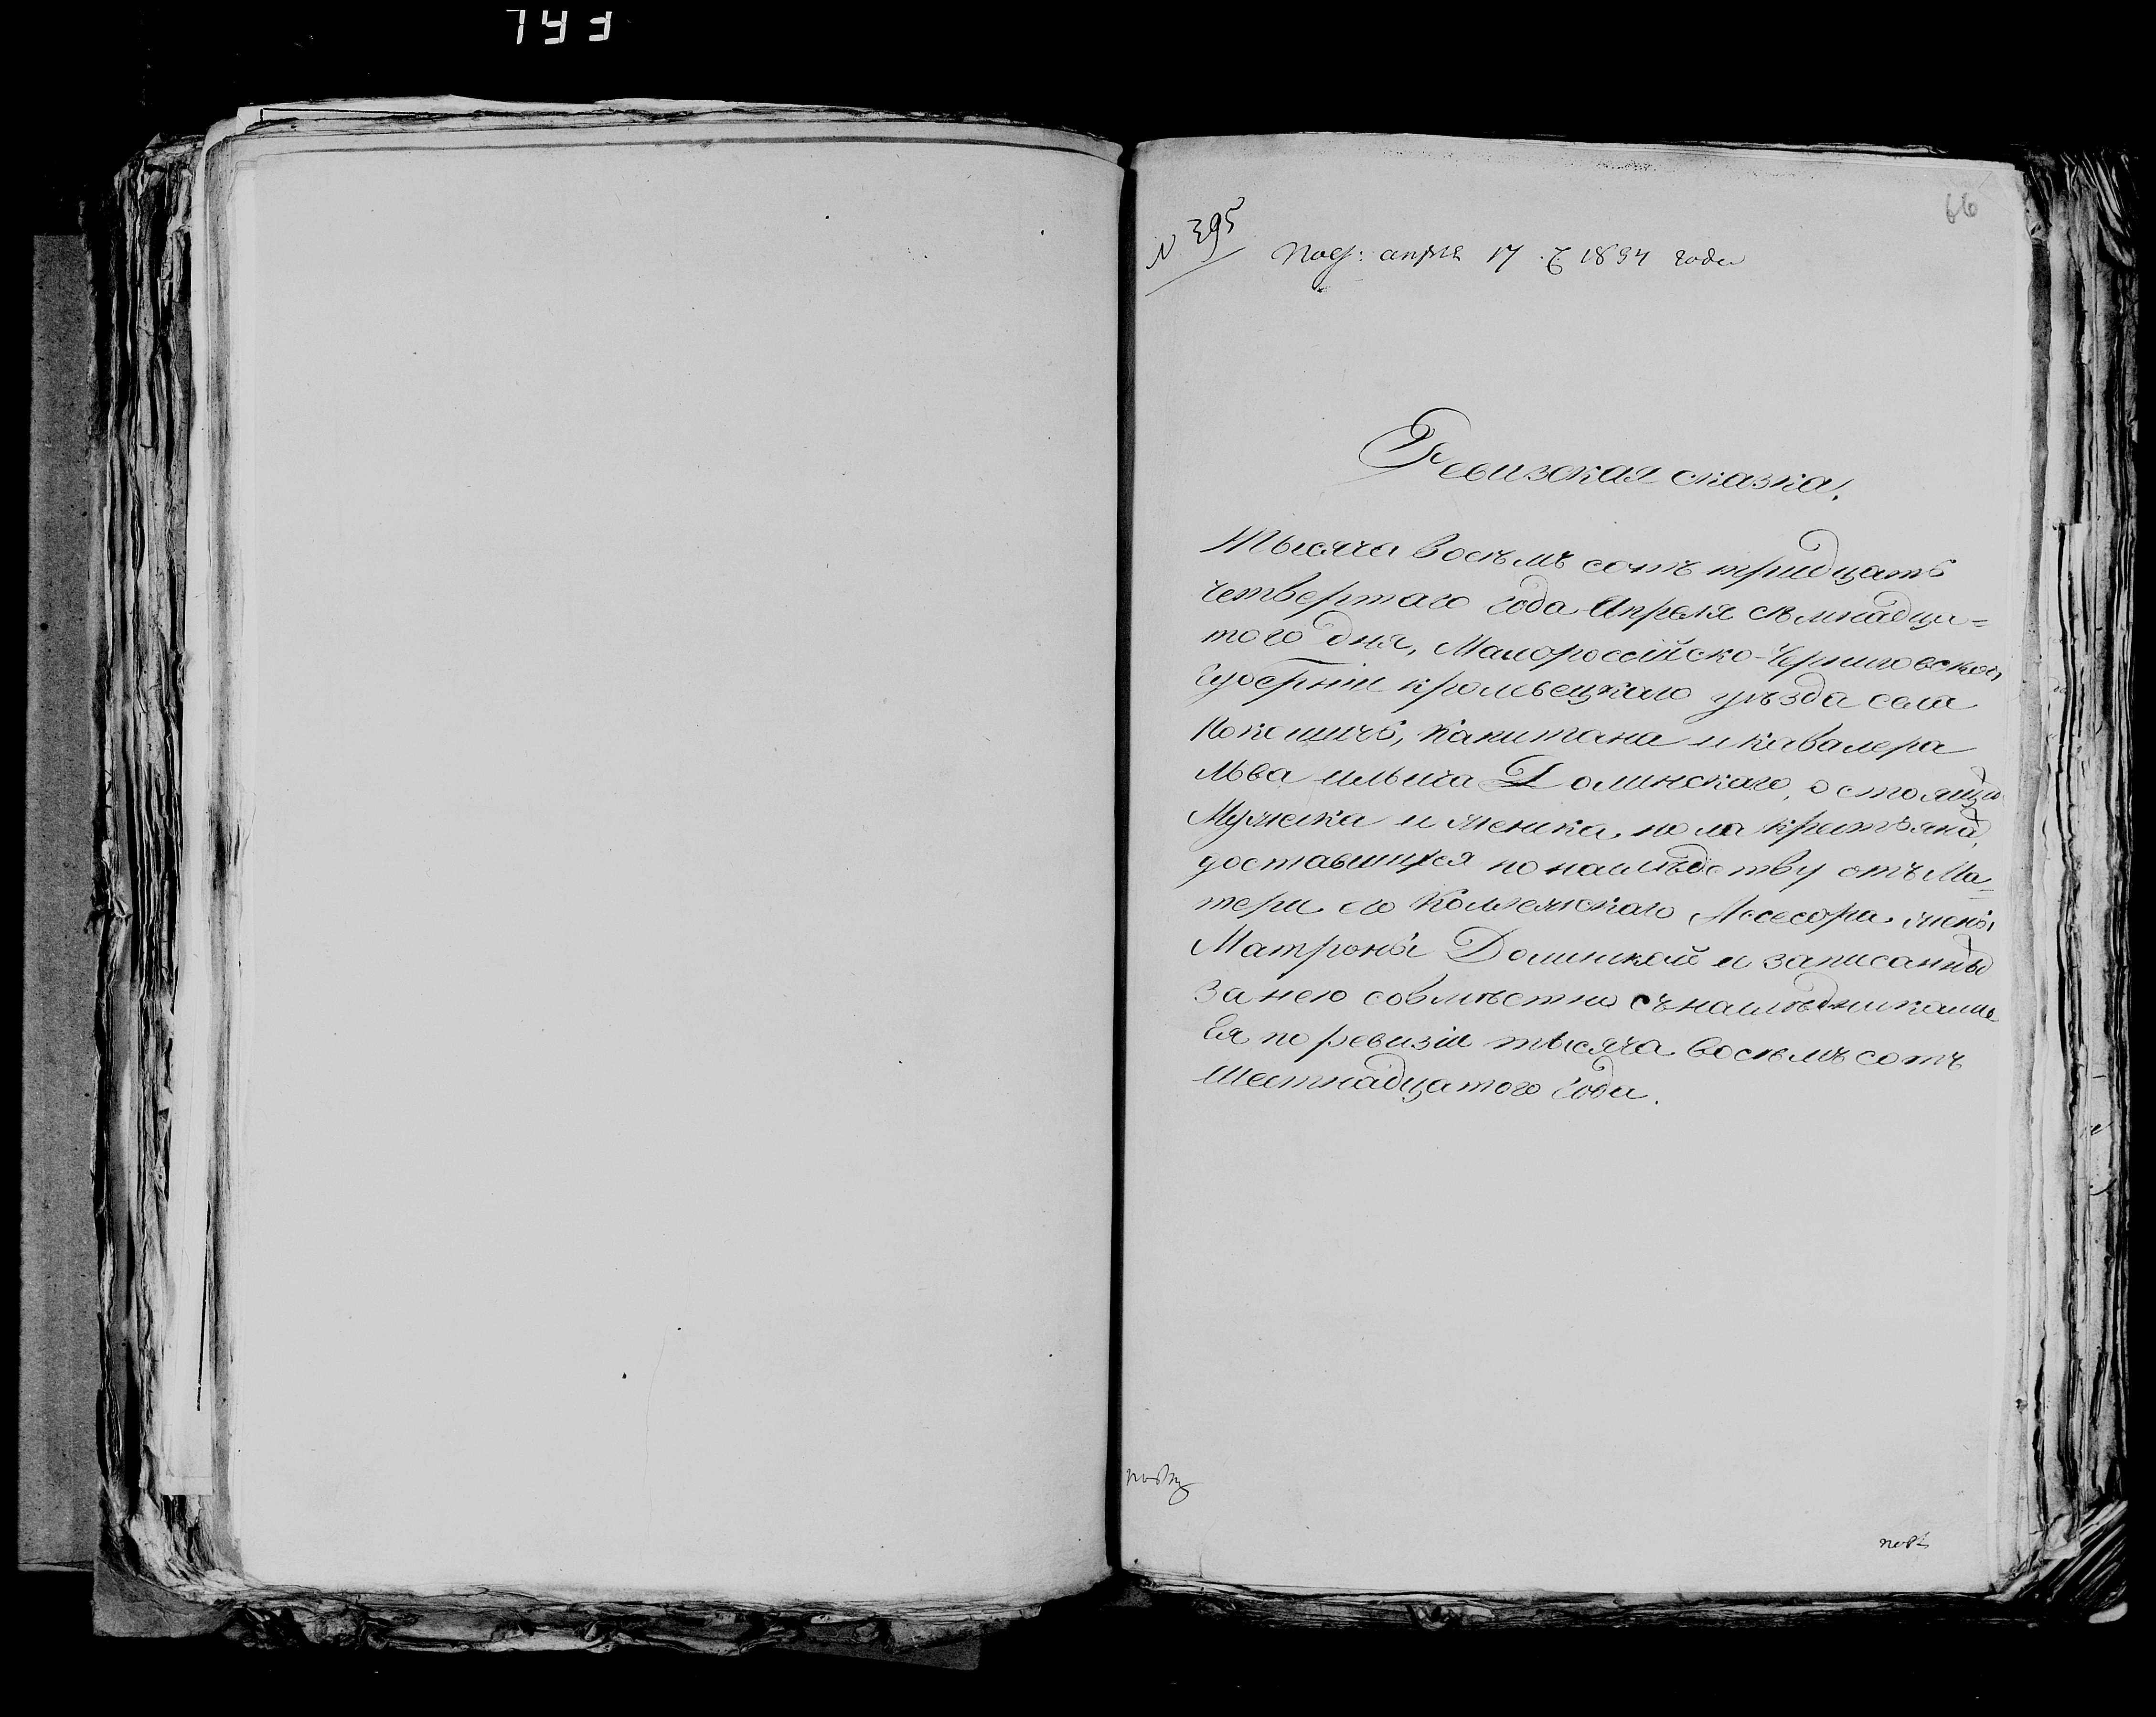 66
N 395
Под: апреля 17 д 1834 года
Ревизская сказка.
Тысяча восемъ сотъ тридцать
четвертаго года Апреля семнадца=
того дня, Малороссійско-Черниговской
губерніи кролевецкаго уѣзда села
Покошичь, капитана и кавалера
Льва ильича Долинскаго, о стоящих
Мужеска и женска пола крестьянах,
доставшихся по наслѣдству отъ Ма-
тери его Коллежскаго Ассесора жены
Матроны Долинской и записанных
за нею совмѣстно съ наслѣдниками
Ея по ревизіи тысяча восемъ сотъ
Шестнадцатого года.